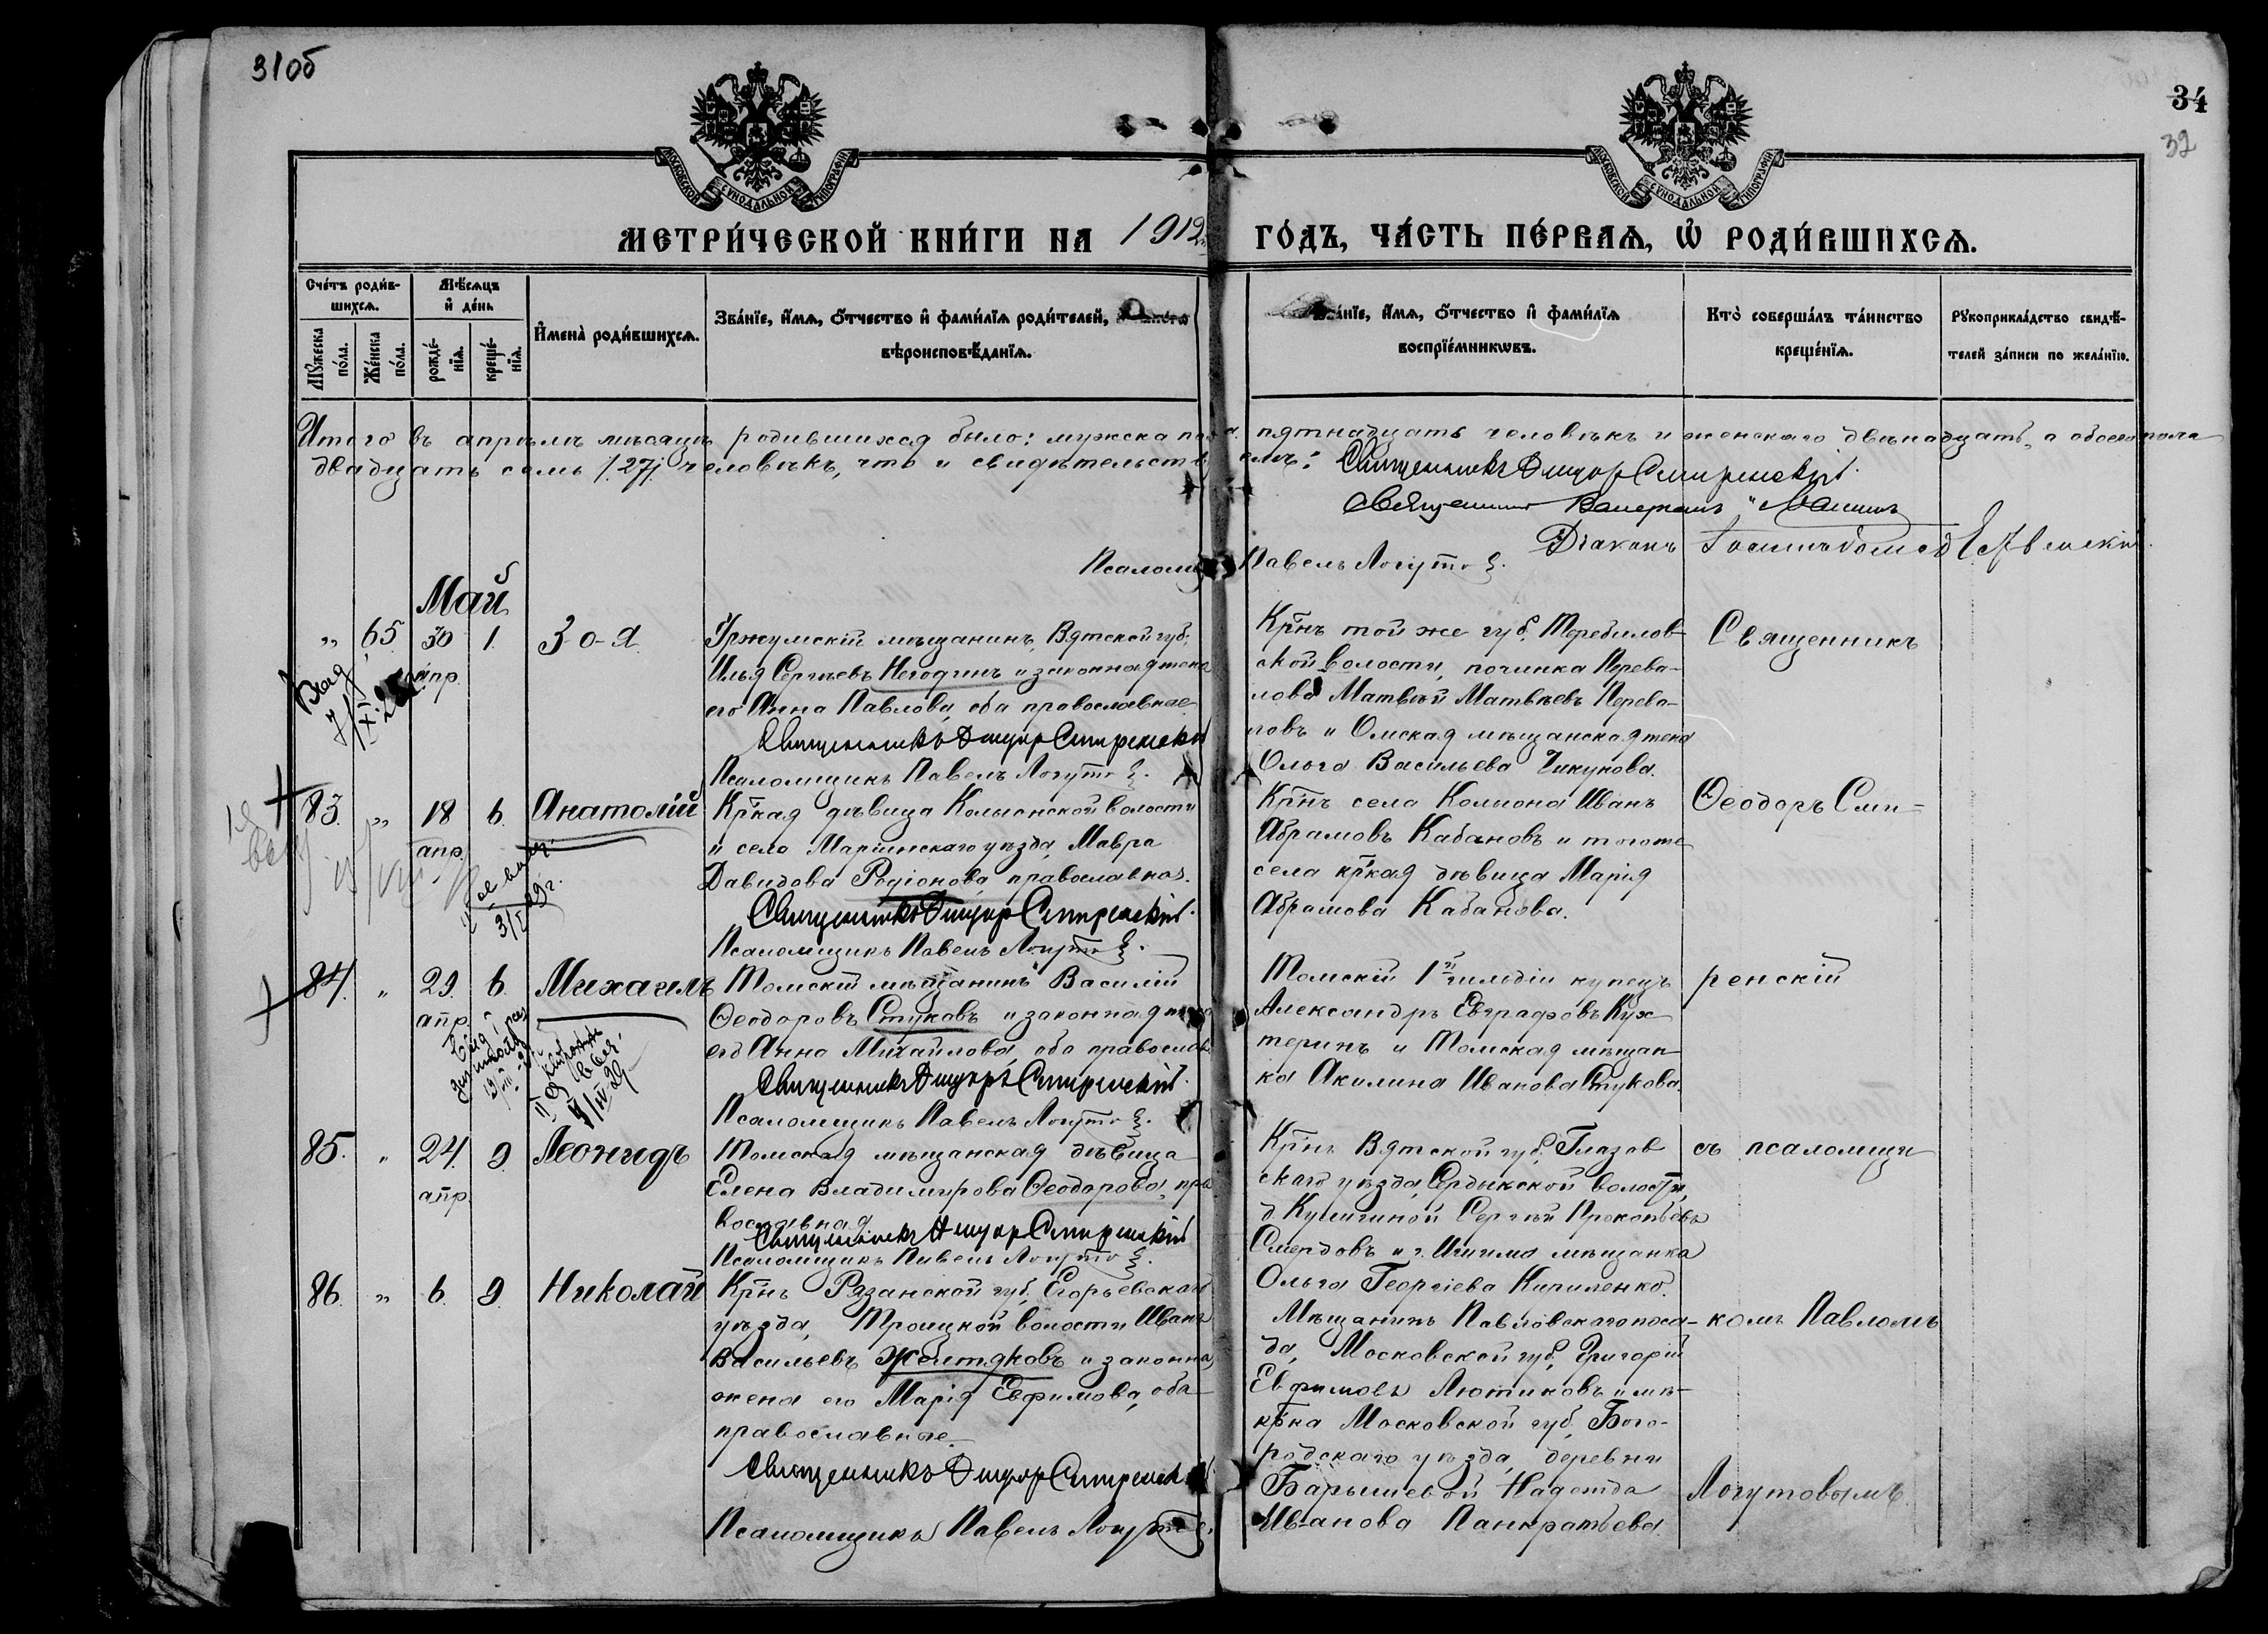 31об
34
32
МОСКОВСКОЙ СѴНОДАЛЬНОЙ ТИПОГРАФІИ
МОСКОВСКОЙ СѴНОДАЛЬНОЙ ТИПОГРАФІИ
МЕТРИ́ЧЕСКОЙ КНИ́ГИ НА 1912 ГО́ДЪ, ЧА́СТЬ ПЕ́РВАѦ, Ѡ РОДИ́ВШИХСѦ.
Сче́тъ роди́в-
шихсѧ.
Мꙋ́жеска по́ла.
Же́нска по́ла.
Мѣ́сѧцъ
и҆ де́нь
рожде́-
нїѧ.
креще́-
нїѧ.
И҆мена̀ роди́вшихсѧ.
Зва́нїе, и҆́мѧ, ѻ҆́тчество и҆ фами́лїѧ роди́телей,
вѣроисповѣ́данїѧ.
Зва́нїе, и҆́мѧ, ѻ҆́тчество и҆ фами́лїѧ
воспрїе́мникѡвъ.
Кто̀ соверша́лъ та́инство
креще́нїѧ.
Рꙋкоприкла́дство свидѣ́-
телей за́писи по жела́нїю.
Итого въ апрѣлѣ мѣсяцѣ родившихся было: мужска пола пятнадцать человѣкъ и женскаго двѣнадцать, а обоего пола
двадцать семь /27/. человѣкъ, что и свидѣтельствуемъ: Священникъ Ѳеодоръ Смиренскій.
Священникъ
Діаконъ
Псаломщ. Павелъ Логутов.
Май
„ 65. 30 апр. 1. Зоя
Уржумскій мѣщанинъ, Вятской губ.
Илья Сергѣевъ Негодинъ и законная жена
его Анна Павлова, оба православные
Священникъ Ѳеодоръ Смиренскій
Псаломщикъ Павелъ Логутов.
Кр̃нъ той же губ. Теребилов-
ской волости, починка Перева-
лова Матвѣй Матвѣевъ Перева-
ловъ и Омская мѣщанская жена
Ольга Васильева Чикунова.
Священникъ
83. „ 18 апр. 6. Анатолій
Кр̃кая дѣвица Колыонской волости
и села Маріинскаго уѣзда, Мавра
Давидова Родіонова, православная.
Священникъ Ѳеодоръ Смиренскій.
Псаломщикъ Павелъ Логутов.
Кр̃нъ села Колиона Иванъ
Абрамовъ Кабановъ и тогоже
села кр̃кая дѣвица Марія
Абрамова Кабанова.
Ѳеодоръ Сми-
84. „ 29. апр. 6. Михаилъ
Томскій мѣщанинъ Василій
Ѳеодоровъ Стуковъ и законная жена
его Анна Михайлова, оба православ.
Священникъ Ѳеодоръ Смиренскій.
Псаломщикъ Павелъ Логутов.
Томскій 1й гильдіи купецъ
Александръ Евграфовъ Кух-
теринъ и Томская мѣщан-
ка Акилина Иванова Стукова.
ренскій
85. „ 24. апр. 9. Леонидъ
Томская мѣщанская дѣвица
Елена Владимирова Ѳеодорова, пра-
вославная
Священникъ Ѳеодоръ Смиренскій
Псаломщикъ Павелъ Логутов.
Кр̃нъ Вятской губ. Глазов-
скаго уѣзда, Ердыкской волости,
д. Кулигиной Сергѣй Прокопьевъ
Смердовъ и г. Ишима мѣщанка
Ольга Георгіева Кириленко.
съ псаломщи-
86. „ 6. 9. Николай
Кр̃нъ Рязанской губ. Егорьевскаго
уѣзда, Троицкой волости Иванъ
Васильевъ Желтяковъ и законная
жена его Марія Евфимова, оба
православные.
Священникъ Ѳеодоръ Смиренскій
Псаломщикъ Павелъ Логутов.
Мѣщанинъ Павловскаго поса-
да, Московской губ. Григорій
Евфимовъ Лютиковъ и
кр̃ка Московской губ. Бого-
родскаго уѣзда, деревни
Барышевой Надежда
Иванова Панкратьева
комъ Павломъ
Логутовымъ.